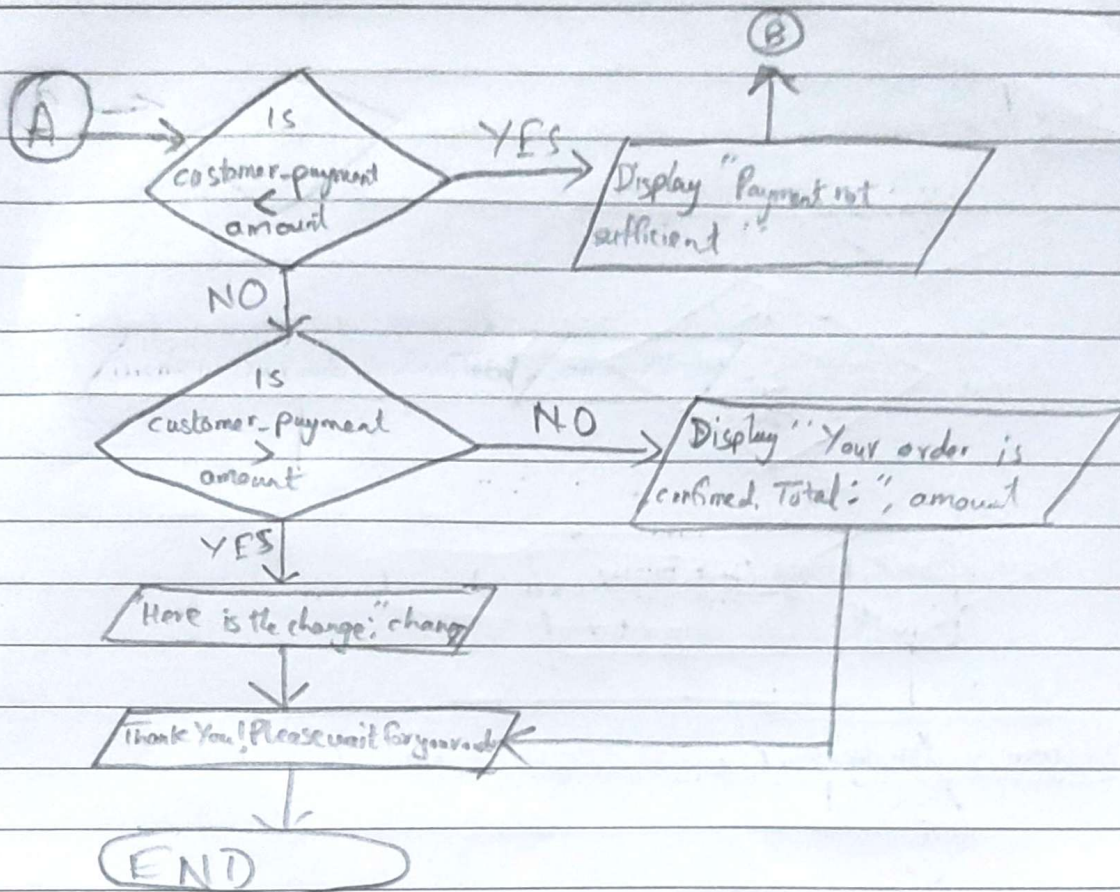 B
A
IS
customer_payment
<
amount
YES
Display "Payment not
sufficient"
NO
IS
customer_payment
>
amount
NO
Display "Your order is
confimed. Total: ", amount
YES
"Here is the change:" change
Thank You! Please wait for your
END